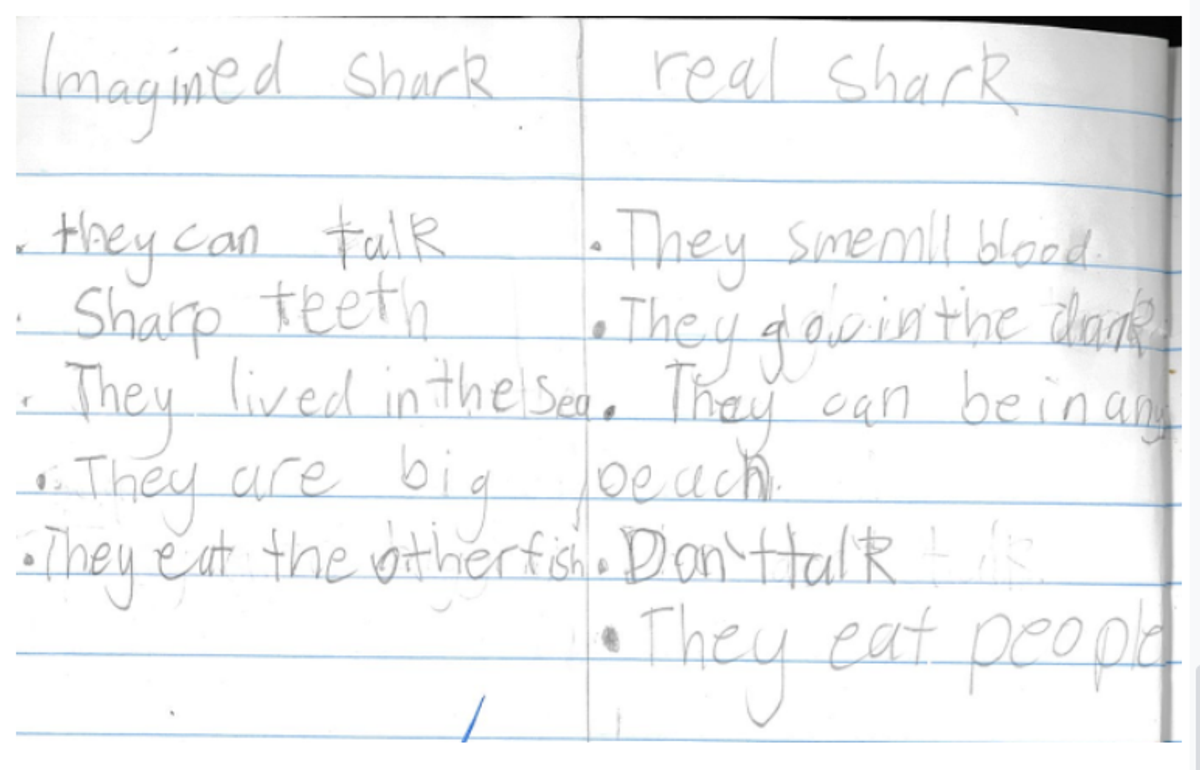 Imagined Shark
they can talk
Sharp teeth
They lived in the Sea
They are big
They eat the other fish
real shark
They smemll blood.
They gow in the dark.
They can be in any
beach.
Don't talk
They eat people